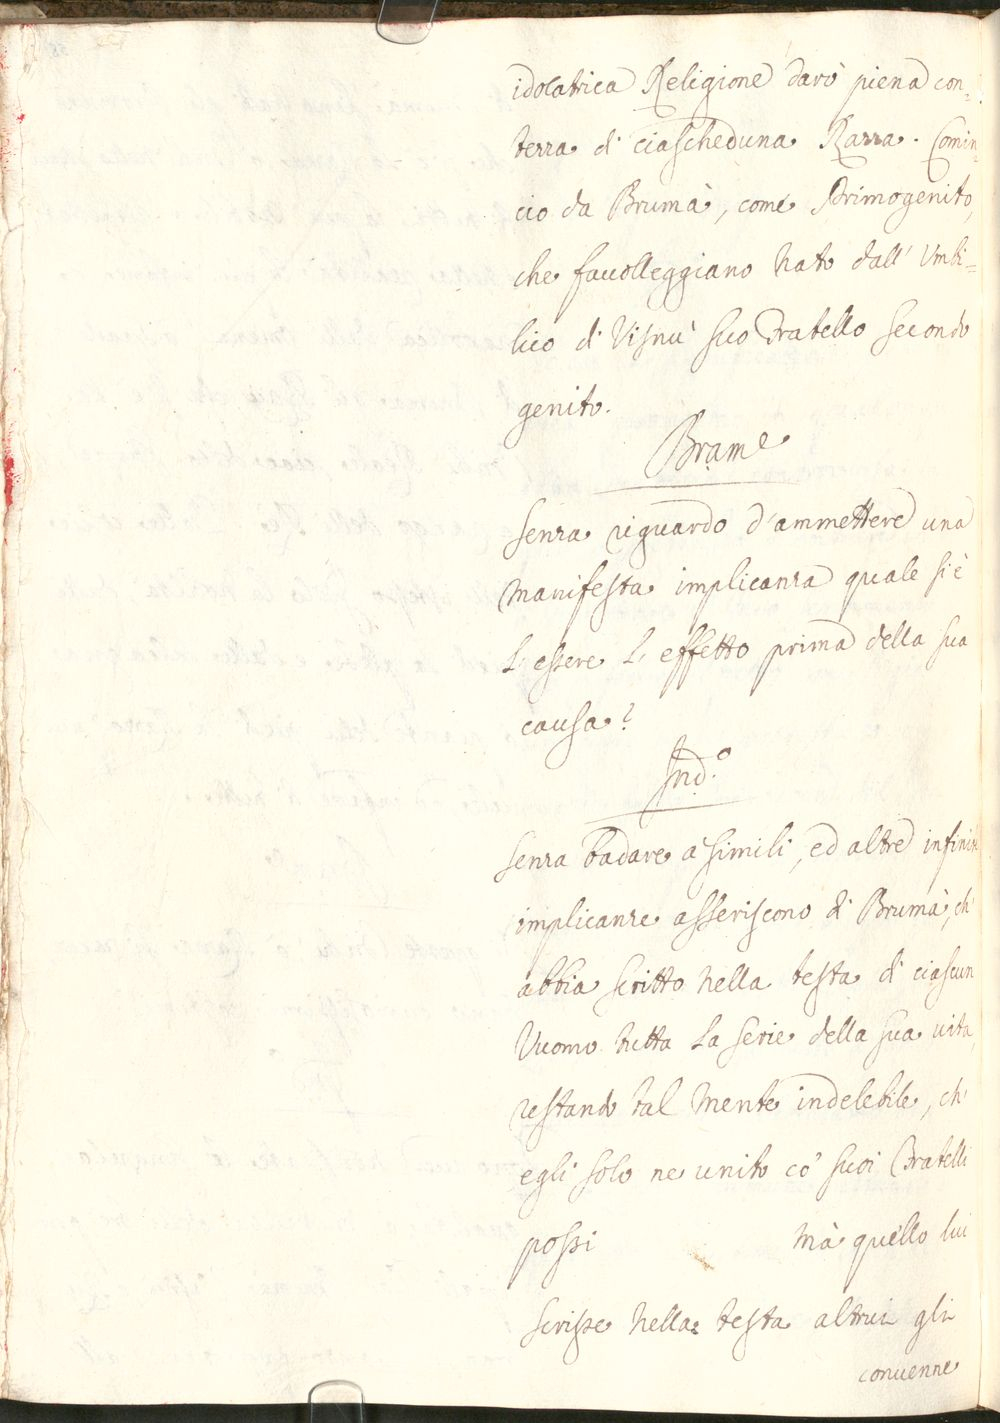 idolatrica Religione darò piena con=
terza di ciascheduna Razza. Comin=
cio da Brumà, come Primogenito,
che favolleggiano nato dall' Umbi=
lico di Visnù suo Fratello secondo
genito.
Brame
Senza riguardo d'ammettere una
manifesta implicanza quale si è
l'essere l'effetto prima della sua
causa?
Ind.o
Senza badare à simili, ed altre infinite
implicanze asseriscono di Brumà, ch'
abbia scritto nella testa di ciascun
Vuomo tutta la serie della sua vita,
restando tal mente indelebile, ch'
egli solo ne unito co' suoi Fratelli
possi mà quello lui
scrisse nella testa altrui gli
convenne